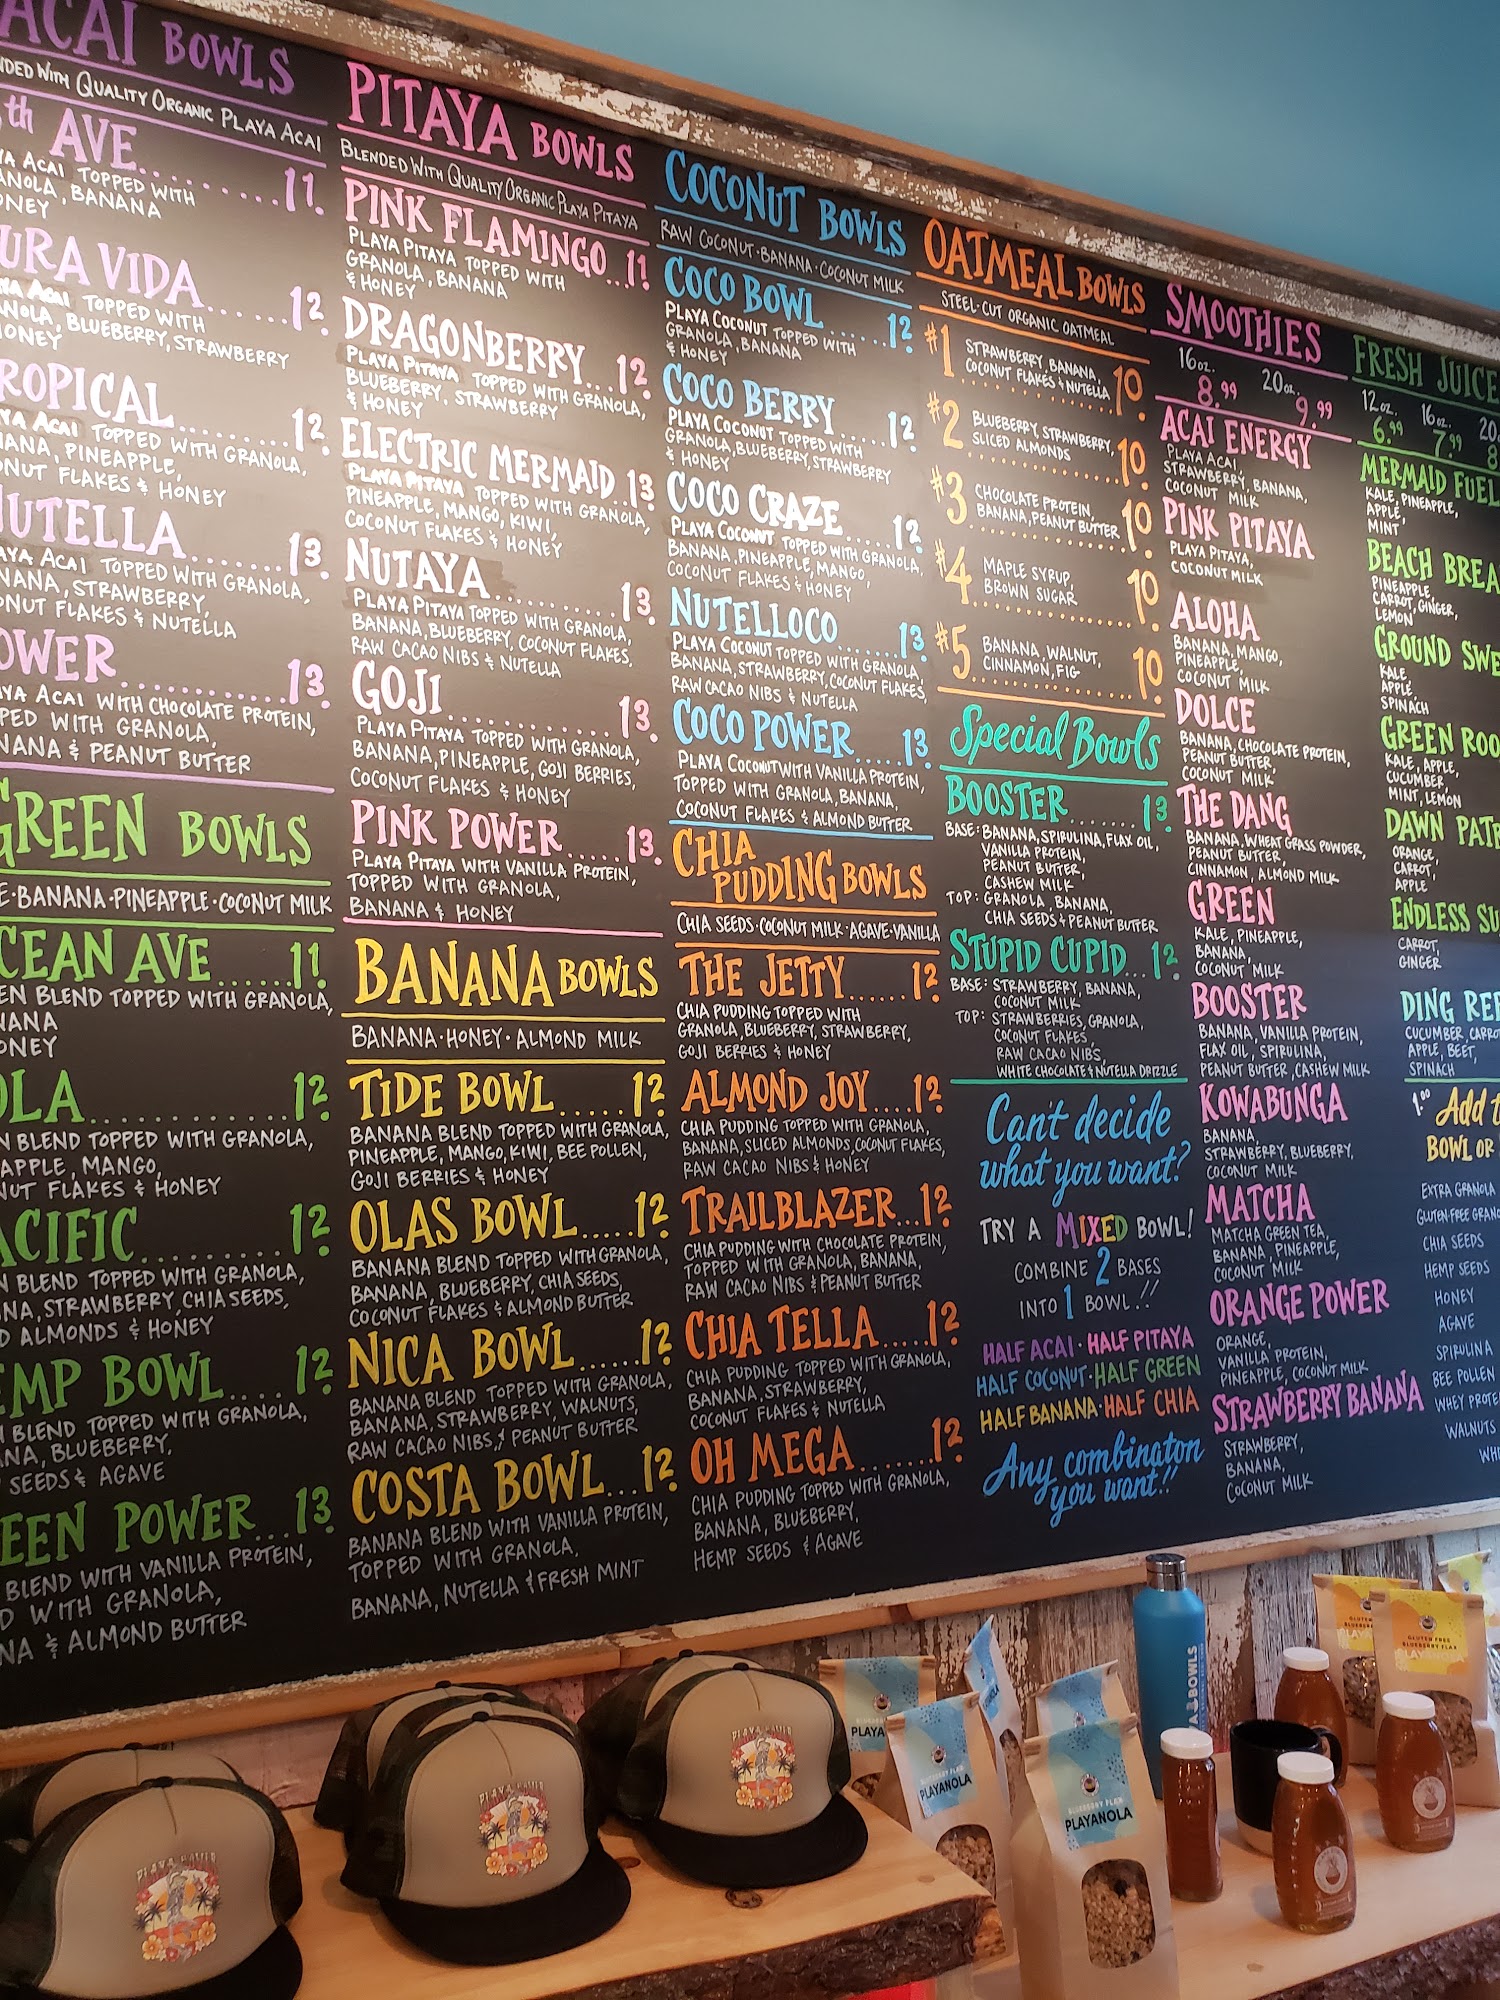 ACAI BOWLS
WITH QUALITY ORGANIC PLAYA ACAI
AVE........ 11.
ACAI TOPPED WITH
BANANA
VIDA...... 12.
TOPPED WITH
BLUEBERRY, STRAWBERRY
........ 12.
ACAI TOPPED WITH GRANOLA,
PINEAPPLE,
FLAKES & HONEY
NUTELLA...... 13.
ACAI TOPPED WITH GRANOLA,
STRAWBERRY,
FLAKES & NUTELLA
............ 13.
ACAI WITH CHOCOLATE PROTEIN,
WITH GRANOLA,
& PEANUT BUTTER
GREEN BOWLS
BANANA · PINEAPPLE · COCONUT MILK
AVE...... 11
BLEND TOPPED WITH GRANOLA,
............ 12.
BLEND TOPPED WITH GRANOLA,
MANGO,
FLAKES & HONEY
......... 12.
BLEND TOPPED WITH GRANOLA,
STRAWBERRY, CHIA SEEDS,
ALMONDS & HONEY
BOWL.... 12.
BLEND TOPPED WITH GRANOLA,
BLUEBERRY,
SEEDS & AGAVE
POWER... 13.
BLEND WITH VANILLA PROTEIN,
WITH GRANOLA,
& ALMOND BUTTER
PITAYA BOWLS
BLENDED WITH QUALITY ORGANIC PLAYA PITAYA
PINK FLAMINGO.. 11
PLAYA PITAYA TOPPED WITH
GRANOLA, BANANA
& HONEY
DRAGONBERRY... 12.
PLAYA PITAYA TOPPED WITH GRANOLA,
BLUEBERRY, STRAWBERRY
& HONEY
ELECTRIC MERMAID.. 13.
PLAYA PITAYA TOPPED WITH GRANOLA,
PINEAPPLE, MANGO, KIWI,
COCONUT FLAKES & HONEY
NUTAYA............ 13.
PLAYA PITAYA TOPPED WITH GRANOLA,
BANANA, BLUEBERRY, COCONUT FLAKES,
RAW CACAO NIBS & NUTELLA
GOJI............... 13.
PLAYA PITAYA TOPPED WITH GRANOLA,
BANANA, PINEAPPLE, GOJI BERRIES,
COCONUT FLAKES & HONEY
PINK POWER...... 13.
PLAYA PITAYA WITH VANILLA PROTEIN,
TOPPED WITH GRANOLA,
BANANA & HONEY
BANANA BOWLS
BANANA · HONEY · ALMOND MILK
TIDE BOWL..... 12.
BANANA BLEND TOPPED WITH GRANOLA,
PINEAPPLE, MANGO, KIWI, BEE POLLEN,
GOJI BERRIES & HONEY
OLAS BOWL..... 12.
BANANA BLEND TOPPED WITH GRANOLA,
BANANA, BLUEBERRY, CHIA SEEDS,
COCONUT FLAKES & ALMOND BUTTER
NICA BOWL...... 12.
BANANA BLEND TOPPED WITH GRANOLA,
BANANA, STRAWBERRY, WALNUTS,
RAW CACAO NIBS, & PEANUT BUTTER
COSTA BOWL... 12.
BANANA BLEND WITH VANILLA PROTEIN,
TOPPED WITH GRANOLA,
BANANA, NUTELLA & FRESH MINT
COCONUT BOWLS
RAW COCONUT · BANANA · COCONUT MILK
COCO BOWL..... 12.
PLAYA COCONUT TOPPED WITH
GRANOLA, BANANA
& HONEY
COCO BERRY..... 12.
PLAYA COCONUT TOPPED WITH
GRANOLA, BLUEBERRY, STRAWBERRY
& HONEY
COCO CRAZE..... 12.
PLAYA COCONUT TOPPED WITH GRANOLA,
BANANA, PINEAPPLE, MANGO,
COCONUT FLAKES & HONEY
NUTELLOCO...... 13.
PLAYA COCONUT TOPPED WITH GRANOLA,
BANANA, STRAWBERRY, COCONUT FLAKES,
RAW CACAO NIBS & NUTELLA
COCO POWER..... 13.
PLAYA COCONUT WITH VANILLA PROTEIN,
TOPPED WITH GRANOLA, BANANA,
COCONUT FLAKES & ALMOND BUTTER
CHIA
PUDDING BOWLS
CHIA SEEDS · COCONUT MILK · AGAVE · VANILLA
THE JETTY...... 12.
CHIA PUDDING TOPPED WITH
GRANOLA, BLUEBERRY, STRAWBERRY,
GOJI BERRIES & HONEY
ALMOND JOY.... 12.
CHIA PUDDING TOPPED WITH GRANOLA,
BANANA, SLICED ALMONDS, COCONUT FLAKES,
RAW CACAO NIBS & HONEY
TRAILBLAZER... 12.
CHIA PUDDING WITH CHOCOLATE PROTEIN,
TOPPED WITH GRANOLA, BANANA,
RAW CACAO NIBS & PEANUT BUTTER
CHIA TELLA..... 12.
CHIA PUDDING TOPPED WITH GRANOLA,
BANANA, STRAWBERRY,
COCONUT FLAKES & NUTELLA
OH MEGA....... 12.
CHIA PUDDING TOPPED WITH GRANOLA,
BANANA, BLUEBERRY,
HEMP SEEDS & AGAVE
OATMEAL BOWLS
STEEL-CUT ORGANIC OATMEAL
#1 STRAWBERRY, BANANA,
COCONUT FLAKES & NUTELLA 10.
#2 BLUEBERRY, STRAWBERRY,
SLICED ALMONDS 10.
#3 CHOCOLATE PROTEIN,
BANANA, PEANUT BUTTER 10.
#4 MAPLE SYRUP,
BROWN SUGAR 10.
#5 BANANA, WALNUT,
CINNAMON, FIG 10.
Special Bowls
BOOSTER........ 13.
BASE: BANANA, SPIRULINA, FLAX OIL,
VANILLA PROTEIN,
PEANUT BUTTER,
CASHEW MILK
TOP: GRANOLA, BANANA,
CHIA SEEDS & PEANUT BUTTER
STUPID CUPID... 12.
BASE: STRAWBERRY, BANANA,
COCONUT MILK
TOP: STRAWBERRIES, GRANOLA,
COCONUT FLAKES,
RAW CACAO NIBS,
WHITE CHOCOLATE & NUTELLA DRIZZLE
Can't decide
what you want?
TRY A MIXED BOWL!
COMBINE 2 BASES
INTO 1 BOWL!!
HALF ACAI · HALF PITAYA
HALF COCONUT · HALF GREEN
HALF BANANA · HALF CHIA
Any combinaton
you want!!
SMOOTHIES
16oz. 20oz.
8.99 9.99
ACAI ENERGY
PLAYA ACAI,
STRAWBERRY, BANANA,
COCONUT MILK
PINK PITAYA
PLAYA PITAYA,
COCONUT MILK
ALOHA
BANANA, MANGO,
PINEAPPLE,
COCONUT MILK
DOLCE
BANANA, CHOCOLATE PROTEIN,
PEANUT BUTTER,
COCONUT MILK
THE DANG
BANANA, WHEAT GRASS POWDER,
PEANUT BUTTER,
CINNAMON, ALMOND MILK
GREEN
KALE, PINEAPPLE,
BANANA,
COCONUT MILK
BOOSTER
BANANA, VANILLA PROTEIN,
FLAX OIL, SPIRULINA,
PEANUT BUTTER, CASHEW MILK
KOWABUNGA
BANANA,
STRAWBERRY, BLUEBERRY,
COCONUT MILK
MATCHA
MATCHA GREEN TEA,
BANANA, PINEAPPLE,
COCONUT MILK
ORANGE POWER
ORANGE,
VANILLA PROTEIN,
PINEAPPLE, COCONUT MILK
STRAWBERRY BANANA
STRAWBERRY,
BANANA,
COCONUT MILK
FRESH JUICE
12oz. 16oz. 20
6.99 7.99 8
MERMAID FUEL
KALE, PINEAPPLE,
APPLE,
MINT
BEACH
PINEAPPLE,
CARROT, GINGER,
LEMON
GROUND
KALE
APPLE,
SPINACH
GREEN
KALE, APPLE,
CUCUMBER,
MINT, LEMON
DAWN
ORANGE,
CARROT,
APPLE
ENDLESS
CARROT,
GINGER
DING
CUCUMBER,
APPLE, BEET,
SPINACH
1.00 Add
BOWL OR
EXTRA GRANOLA
GLUTEN-FREE
CHIA SEEDS
HEMP SEEDS
HONEY
AGAVE
SPIRULINA
BEE POLLEN
WHEY
WALNUTS
PLAYA BOWLS
PLAYA BOWLS
PLAYA BOWLS
PLAYA
PLAYANOLA
BLUEBERRY FLAX
PLAYANOLA
BOWLS
GLUTEN FREE
BLUEBERRY FLAX
PLAYANOLA